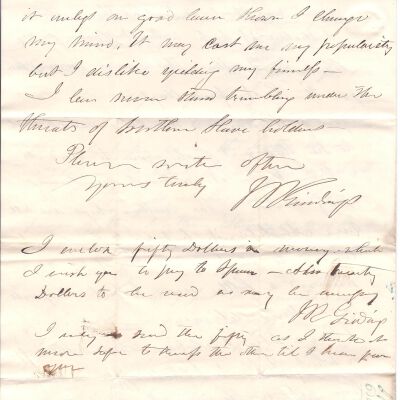 it unless on good cause shown I change
my mind. It may cost me my popularity
but I dislike yielding my firmness —
I have never stood trembling under the
threats of Southern slave holders
Please write often
Yours truly
J R Giddings
I enclose fifty Dollars in money which
I wish you to pay to — Also twenty
Dollars to be used as may be necessary
J R Giddings
I only send the fifty as I think it
more safe to the other til I hear from
you